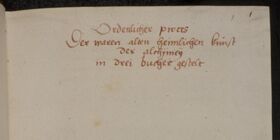 Ordenlicher proces
Der waren alten heimlichen kunst
der alchymey
in drei bucher gestelt